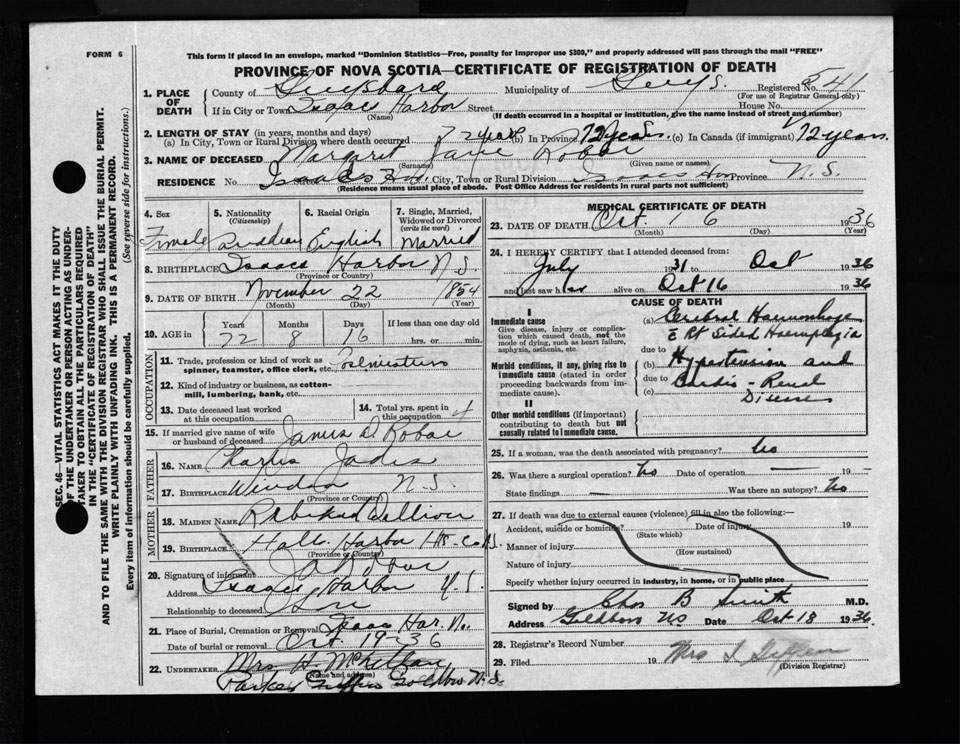 FORM 6
This form if placed in an envelope, marked "Dominion Statistics—Free, penalty for improper use $300," and properly addressed will pass through the mail "FREE"
PROVINCE OF NOVA SCOTIA—CERTIFICATE OF REGISTRATION OF DEATH
SEC. 46—VITAL STATISTICS ACT MAKES IT THE DUTY
OF THE UNDERTAKER OR PERSON ACTING AS UNDER-
TAKER TO OBTAIN ALL THE PARTICULARS REQUIRED
IN THE "CERTIFICATE OF REGISTRATION OF DEATH"
AND TO FILE THE SAME WITH THE DIVISION REGISTRAR WHO SHALL ISSUE THE BURIAL PERMIT.
WRITE PLAINLY WITH UNFADING INK. THIS IS A PERMANENT RECORD.
Every item of information should be carefully supplied. (See reverse side for instructions.)
1. PLACE OF DEATH
County of Municipality of Guys. Registered No. 841
(For use of Registrar General only)
If in City or Town Isaacs Harbor Street House No.
(Name) (If death occurred in a hospital or institution, give the name instead of street and number)
2. LENGTH OF STAY (in years, months and days)
(a) In City, Town or Rural Division where death occurred 72 years (b) In Province 72 years. (c) In Canada (if immigrant) 72 years
3. NAME OF DECEASED Margaret Jane Robar
(Surname) (Given name or names)
RESIDENCE No. Isaacs Street City, Town or Rural Division Isaacs Har Province N.S.
(Residence means usual place of abode. Post Office Address for residents in rural parts not sufficient)
4. Sex Female
5. Nationality (Citizenship) Canadian
6. Racial Origin English
7. Single, Married, Widowed or Divorced (write the word) Married
8. BIRTHPLACE Isaacs Harbor N.S.
(Province or Country)
9. DATE OF BIRTH November 22 1864
(Month) (Day) (Year)
10. AGE in Years Months Days If less than one day old
72 8 16 hrs. or min.
OCCUPATION
11. Trade, profession or kind of work as
spinner, teamster, office clerk, etc.
12. Kind of industry or business, as cotton-
mill, lumbering, bank, etc.
13. Date deceased last worked
at this occupation
14. Total yrs. spent in
this occupation 4
15. If married give name of wife
or husband of deceased James D Robar
FATHER
16. Name Charles
17. Birthplace N.S.
(Province or Country)
MOTHER
18. Maiden Name
19. Birthplace Harbor
(Province or Country)
20. Signature of informant
Address Isaacs Harbor N.S.
Relationship to deceased Son
21. Place of Burial, Cremation or Removal Isaac Har. N.
Date of burial or removal Oct. 19-36
22. Undertaker Mrs. H.
(Name and address)
Parker Giffin Goldboro N.S.
MEDICAL CERTIFICATE OF DEATH
23. DATE OF DEATH Oct. 16 1936
(Month) (Day) (Year)
24. I HEREBY CERTIFY that I attended deceased from:
July 1931 to Oct 1936
and last saw her alive on Oct 16 1936
CAUSE OF DEATH
I
Immediate cause
Give disease, injury or complica-
tion which caused death, not the
mode of dying, such as heart failure,
asphyxia, asthenia, etc.
(a) Cerebral Haemorrhage
c Rt Sided Haemiplegia
due to
Morbid conditions, if any, giving rise to
immediate cause (stated in order
proceeding backwards from im-
mediate cause).
(b) Hypertension and
due to Cardio-Renal
(c) Disease
II
Other morbid conditions (if important)
contributing to death but not
causally related to immediate cause.
25. If a woman, was the death associated with pregnancy? No
26. Was there a surgical operation? No Date of operation — 19 —
State findings — Was there an autopsy? No
27. If death was due to external causes (violence) fill in also the following:—
Accident, suicide or homicide? Date of injury 19
(State which)
Manner of injury
(How sustained)
Nature of injury
Specify whether injury occurred in industry, in home, or in public place
Signed by Chas B Smith M.D.
Address Goldboro NS Date Oct 18 1936
28. Registrar's Record Number
29. Filed 19 Mrs S Giffin
(Division Registrar)